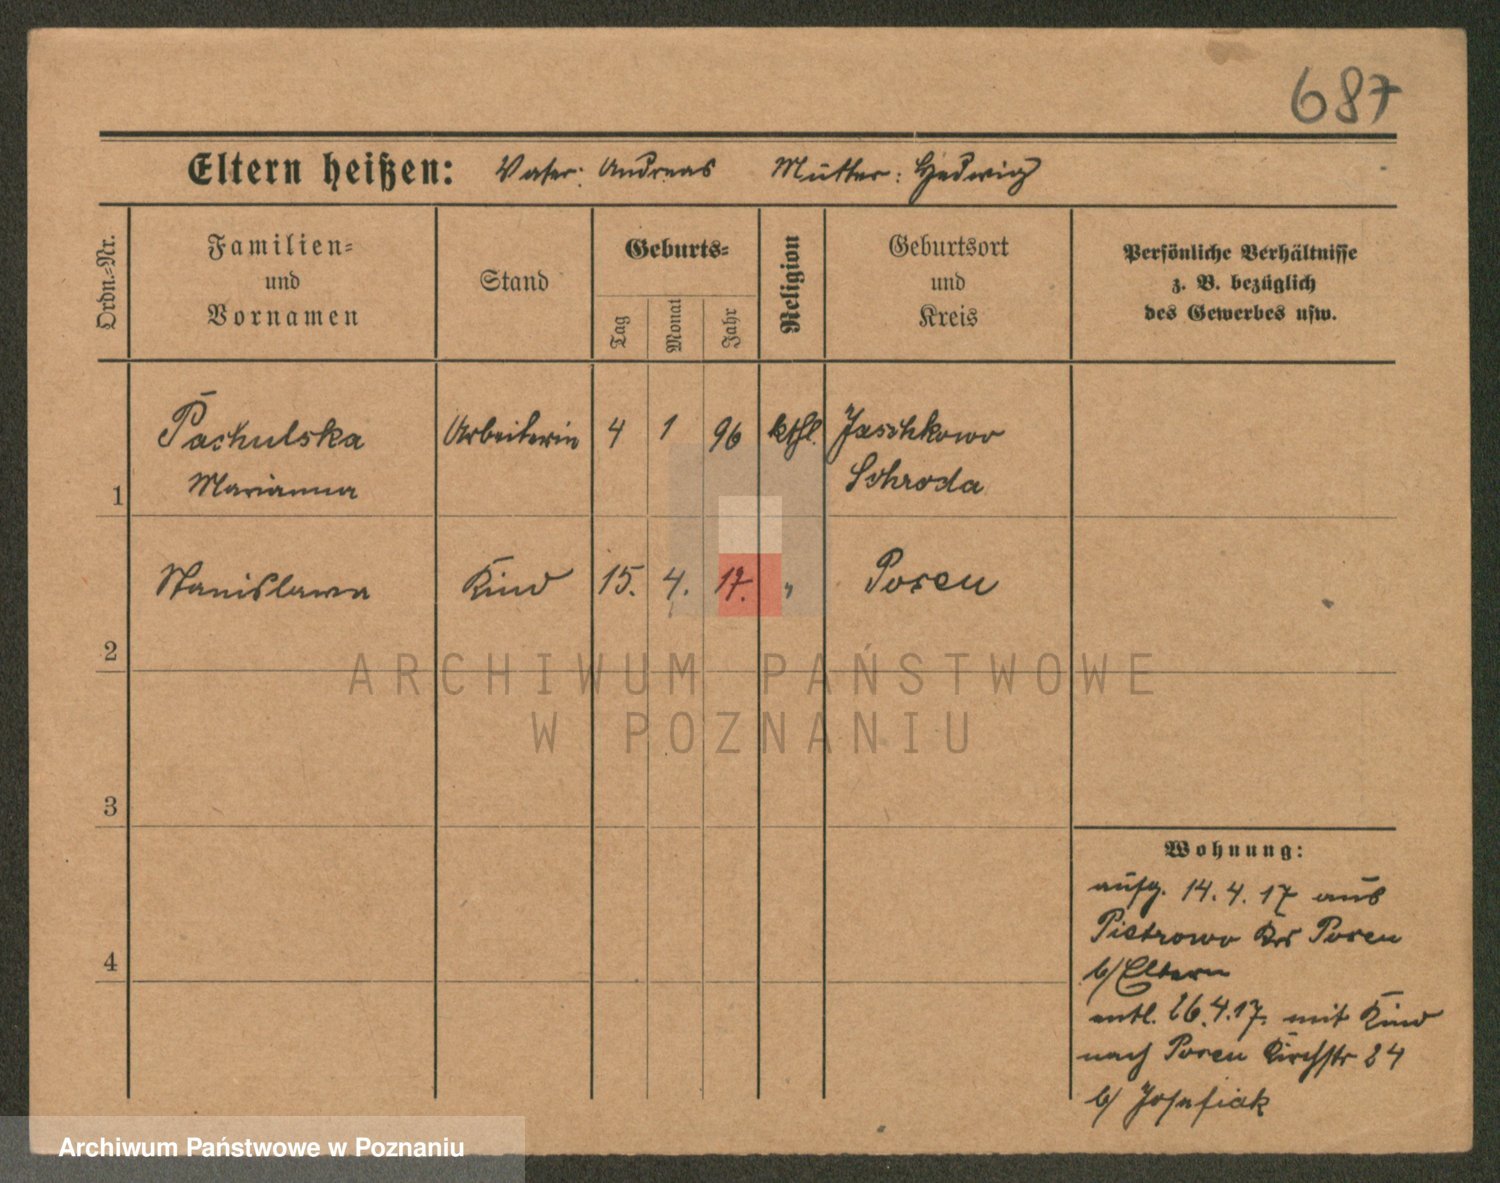 687
Eltern heißen: Vater: Andreas Mutter: Hedwig
Ordn.=Nr.
Familien=
und
Vornamen
Stand
Geburts=
Tag
Monat
Jahr
Religion
Geburtsort
und
Kreis
Persönliche Verhältnisse
z. B. bezüglich
des Gewerbes usw.
Pachulska Arbeiterin 4 1 96 kthl. Jaschkowo
1 Marianna Schroda
Stanislawa Kind 15. 4. 17. " Posen
2
ARCHIWUM PAŃSTWOWE
W POZNANIU
3
4
Wohnung:
aufg. 14.4.17 aus
Pietrowo Krs Posen
b/ Eltern
entl. 26.4.17. mit Kind
nach Posen Kirchstr 24
b/ Josefiak
Archiwum Państwowe w Poznaniu